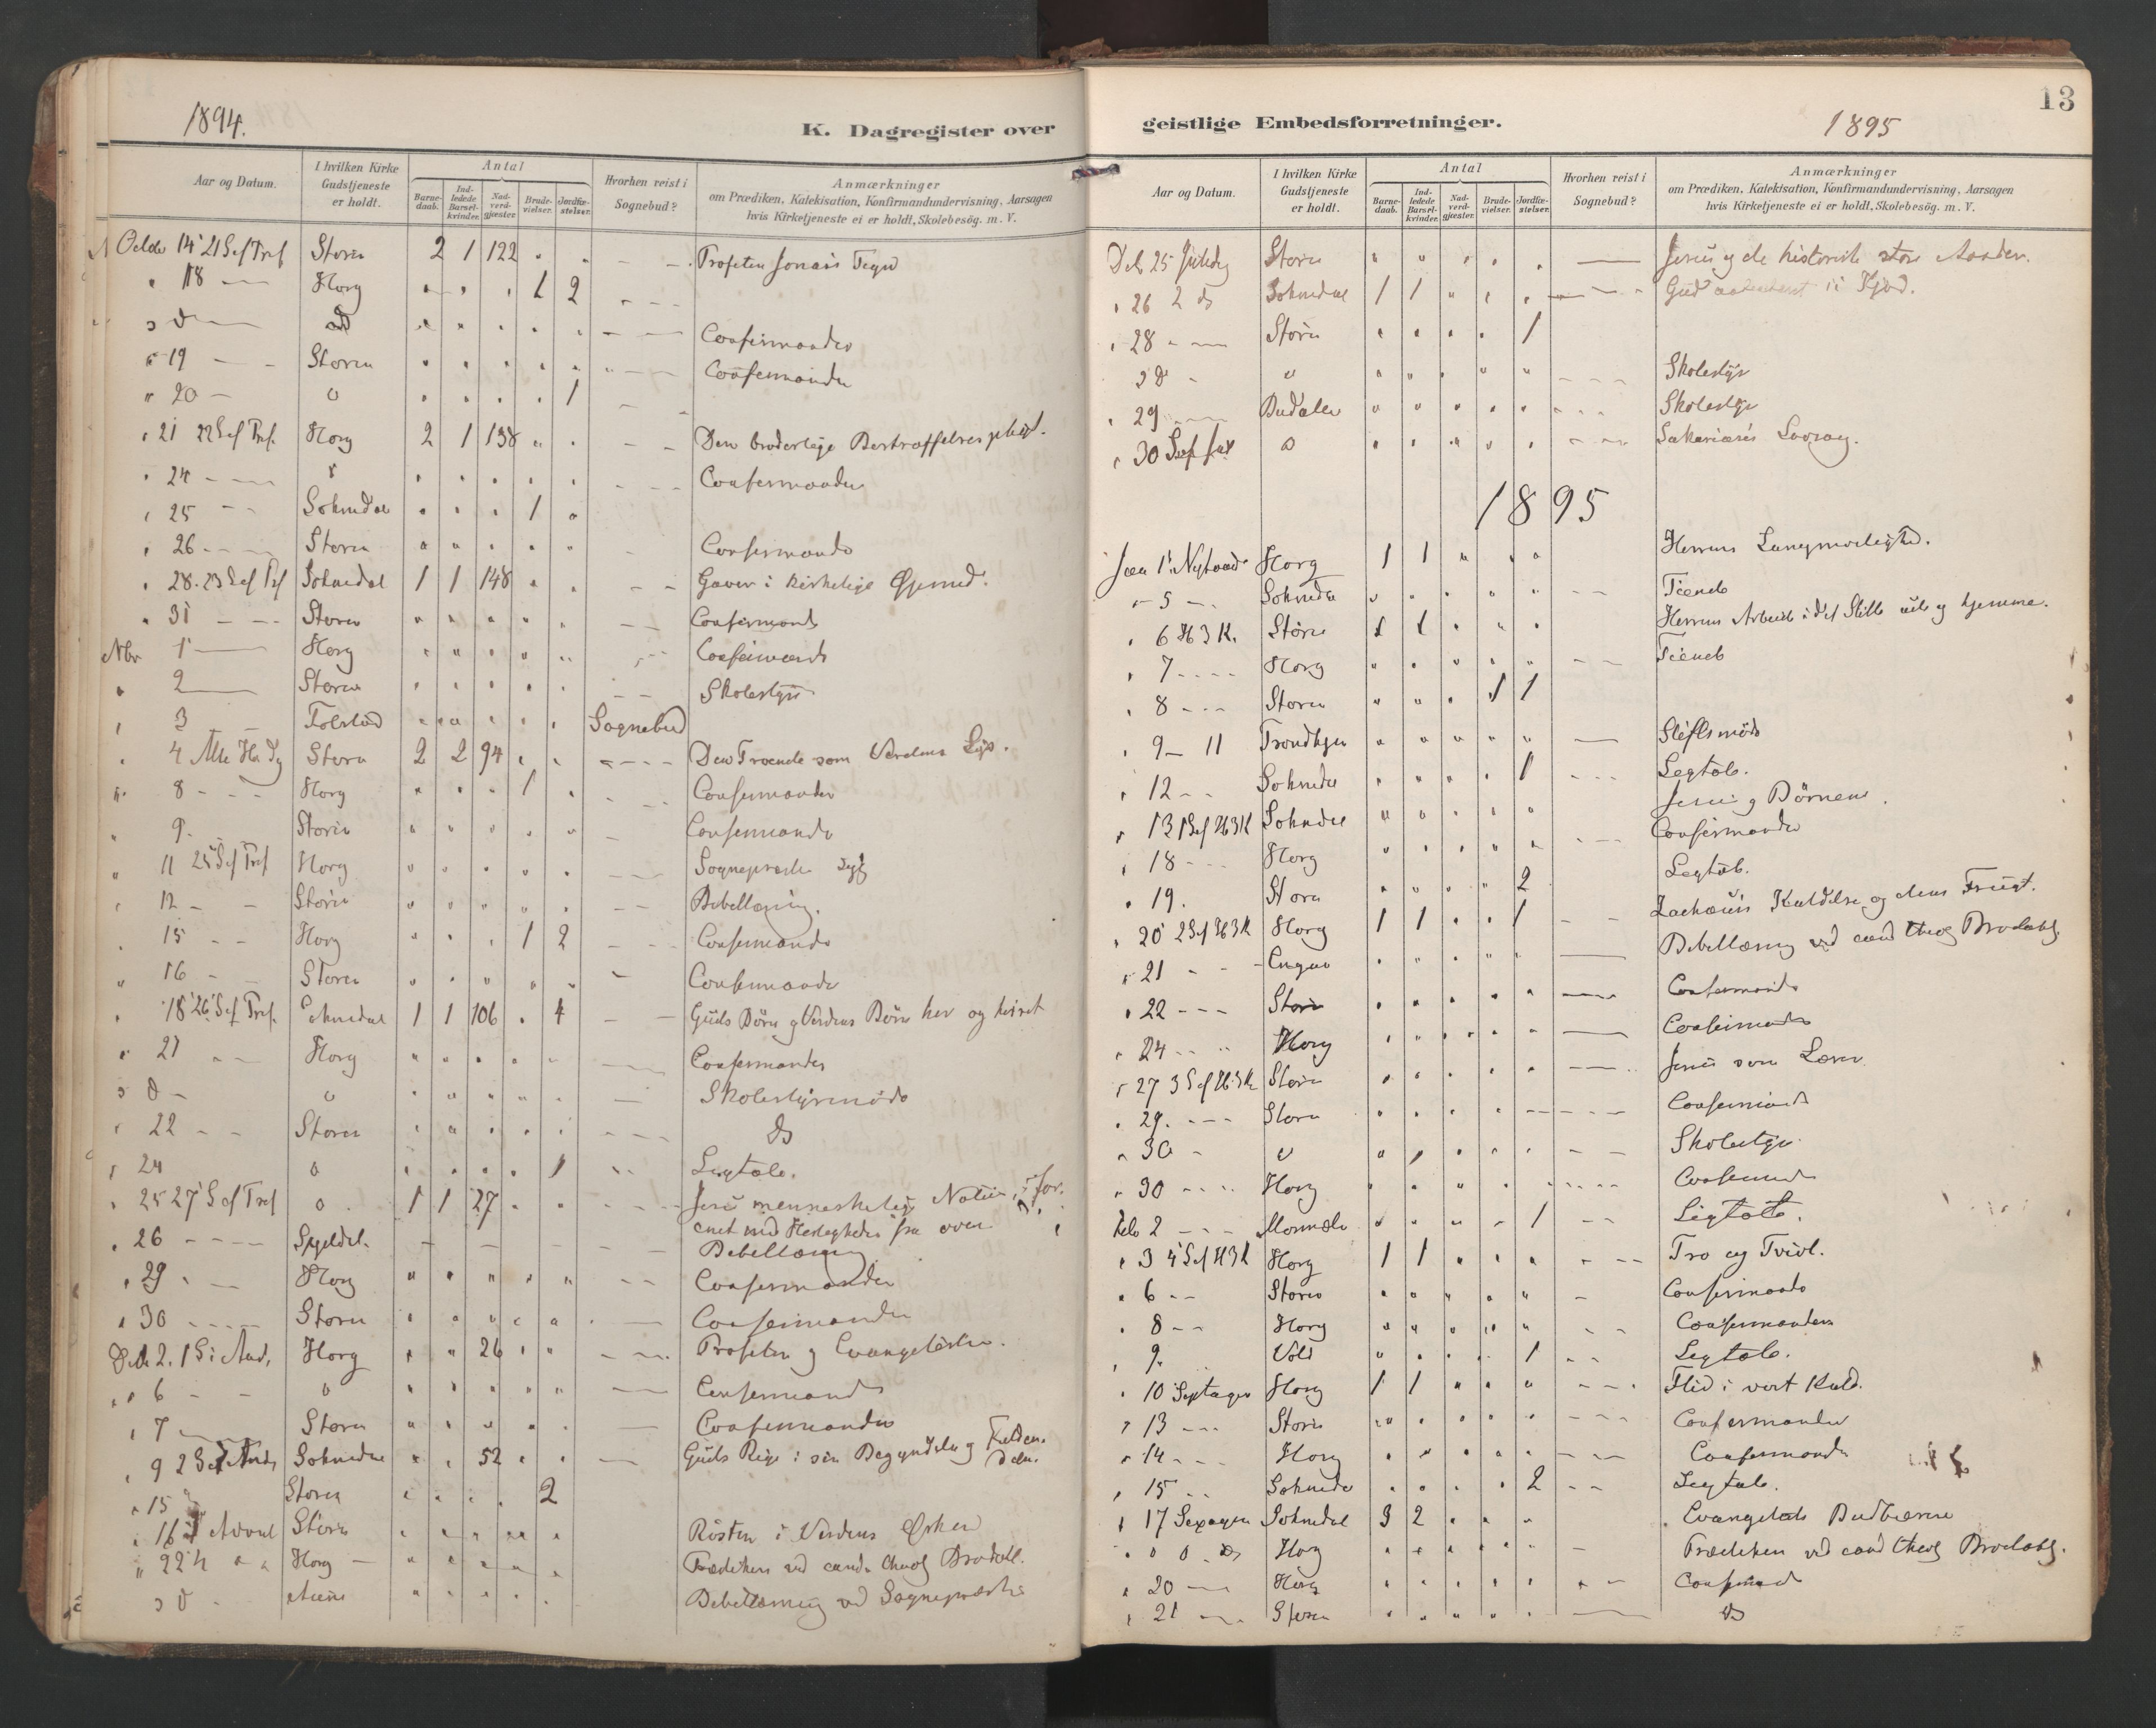 1894.
K. Dagregister over
Aar og Datum.
I hvilken Kirke Gudstjeneste er holdt.
Antal
Barnedaab.
Indledede Barselkvinder.
Nadverdgjæster.
Brudevielser.
Jordfæstelser.
Hvorhen reist i Sognebud?
Anmærkninger
om Prædiken, Katekisation, Konfirmandundervisning, Aarsagen
hvis Kirketjeneste ei er holdt, Skolebesøg. m. V.
Octbr 14 21 S ef Tref Støren 2 1 122 " " Profeten Jonas's Tegn
" 18 Horg " " " 1 2
" D do " " " " " Confirmander
" 19 Støren " " " " " Confirmander
" 20 " " " " " 1
" 21 22 S ef Tref. Horg 2 1 138 " " Den broderlige Bestraffelses pligt.
" 24 " " " " " " Confirmander
" 25 Soknedal " " " 1 "
" 26 Støren " " " " " Confirmande
" 28 23 S ef Tref Soknedal 1 1 148 " " Gaver i kirkelige Øjemed.
" 31 Støren " " " " " Confirmand
Nbr 1 Horg " " " " " Confirmande
" 2 Støren " " " " " Skolestyre
" 3 " " " " " Sognebud
" 4 Alle He Dg Støren 2 2 94 " " Den Troende som Verdens Lys.
" 8 Horg " " " 1 " Confirmander
" 9. Støren " " " " " Confirmande
" 11 25 S ef Tref Horg " " " " " Sognepresten syg
" 12 Støren " " " " " Bibellæsning.
" 15 Horg " " " 1 2 Confirmande
" 16 Støren " " " " " Confirmande
" 18 26 S ef Tref. Soknedal 1 1 106 " 4 Guds Børn og Verdens Børn her og hisset
" 21 Horg " " " " " Confirmander
" D " " " " " " Skolestyremøde
" 22 Støren " " " " " Do
" 24 " " " " " 1 Ligtale.
" 25 27 S ef Tref " 1 1 27 " " Jesu menneskelige Natur i for-
enet med Herligheden fra oven
" 26 Bibellæsning
" 29 Horg " " " " " Confirmander
" 30 Støren " " " " " Confirmander
Dcbr 2. 1 S i Adv. Horg " " 26 " " Profeten og Evangelisten.
" 6 " " " " " " Confirmand
" 7 Støren " " " " " Confirmander
" 9 2 S i Adv Soknedal " " 52 " " Guds Rige i sin Begyndelse og
" 15 Støren " " " " 2
" 16 3 Advent Støren " " " " " Røsten i Verdens Ørken
" 22 4 " " Horg " " " " " Prædiken ved cand. theol Brodahl.
" D " " " " " Bibellæsning ved Sognepræsten
13
geistlige Embedsforretninger.
1895
Aar og Datum.
I hvilken Kirke Gudstjeneste er holdt.
Antal
Barnedaab.
Indledede Barselkvinder.
Nadverdgjæster.
Brudevielser.
Jordfæstelser.
Hvorhen reist i Sognebud?
Anmærkninger
om Prædiken, Katekisation, Konfirmandundervisning, Aarsagen
hvis Kirketjeneste ei er holdt, Skolebesøg. m. V.
Dcb 25 Juledag Støren " " " " " Jesus og de historisk store Aander.
" 26 2 do Soknedal 1 1 " " " Gud aabenbaret i Kjød.
" 28 Støren " " " " 1
" D " " " " " " Skolestyr
" 29 Budalen " " " " " Skolestyr
" 30 S ef Jul " " " " " " Sakarias's Lovsang.
1895
Jan 1 Nytaar Horg 1 1 " " " Herrens Langmodighed.
" 5 Soknedal " " " " " Tiende
" 6 H 3 K. Støren 1 1 " " " Herrens Arbeide i det Stille ude og hjemme.
" 7 Horg " " " " " Tiende
" 8 Støren " " " 1 1
" 9 - 11 Trondhjem " " " " " Stiftsmøde
" 12 Soknedal " " " " 1 Ligtale.
" 13 1 S ef H3K Soknedal " " " " " Jesus og Børnene.
" 18 Horg " " " " " Confirmander
" 19. Støren " " " " 2 Ligtale.
" 20 2 S ef H3K Horg 1 1 " " 1 Zachæus's Kaldelse og dens Frugt.
" 21 " " " " " Bibellæsning ved cand theol Brodahl.
" 22 Støren " " " " " Confirmande
" 24 Horg " " " " " Confirmande
" 27 3 S ef H3K Støren " " " " " Jesus som Lærer
" 29. Støren " " " " " Confirmande
" 30 " " " " " " Skolestyr
" 30 Horg " " " " " Confirmand
Feb 2 " " " " 1 Ligtale.
" 3 4 S ef H3K Horg 1 1 " " " Tro og Tvivl.
" 6 Støren " " " " " Confirmande
" 8 Horg " " " " " Confirmander
" 9. Vold " " " " 1 Ligtale.
" 10 Septuages Horg 1 1 " " " Flid i vort Kald.
" 13 Støren " " " " " Confirmander
" 14 Horg " " " " " Confirmande
" 15 Soknedal " " " " 2 Ligtale.
" 17 Sexagesi Soknedal 3 2 " " " Evangeliets Budbærere
" " D Do Horg " " " " " Prædiken ved cand theol Brodahl.
" 20 Horg " " " " " Confirmand
" 21 Støren " " " " " Do